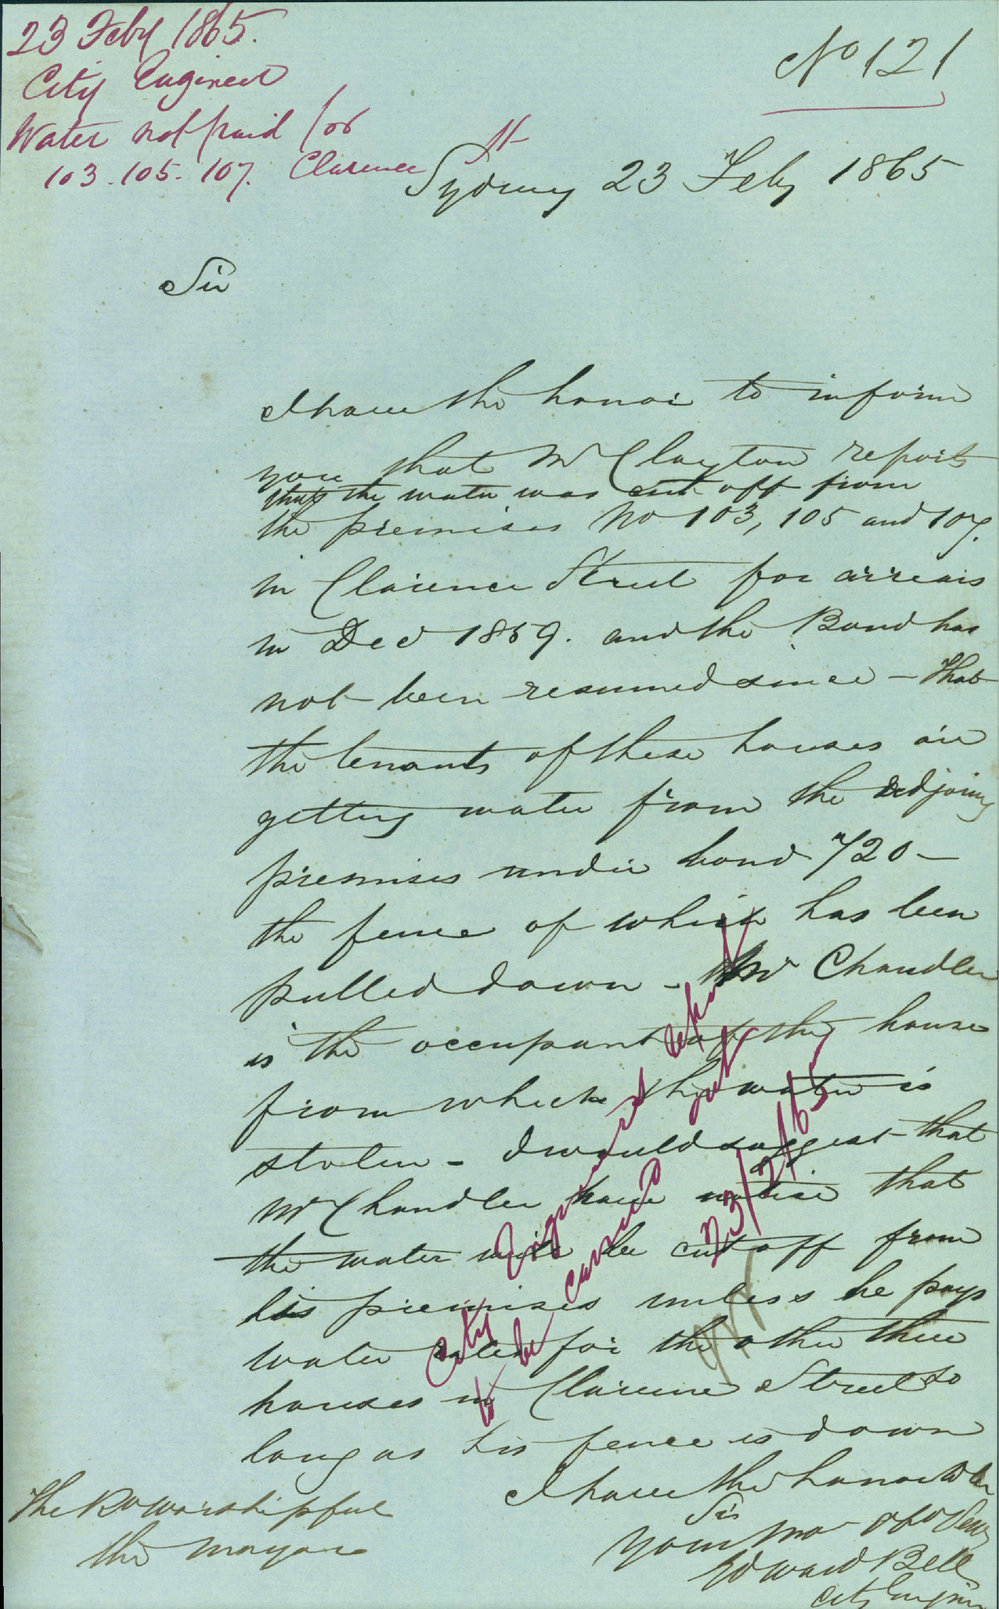 23 Feby 1865.
City Engineer
Water not paid for
103.105.107. Clarence St
No 121
Sydney 23 Feby 1865
Sir
I have the honor to inform
you that Mr Clayton reports
that the water was cut off from
the premises No 103, 105 and 107.
in Clarence Street for arrears
in Dec 1859. and the Bond has
not been resumed since – that
the tenants of these houses are
getting water from the adjoing
premises under bond 720 –
the fence of which has been
pulled down – Mr Chandler
is the occupant of the house
from which the water is
stolen – I would suggest that
Mr Chandler have notice that
the water will be cut off from
his premises unless he pays
water rates for the other three
houses in Clarence Street so
long as his fence is down
I have the honor to be
Sir
Your Mo Obt Serv
Edward Bell
City Engineer
The Rt Worshipful
the Mayor
City Engineers report
to be carried out
23/2/65